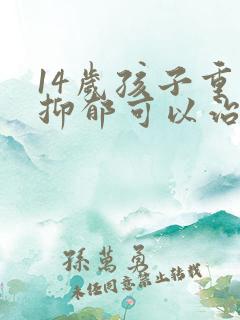 14歲孩子重
抑郁可以治
孫萬勇
未经同意禁止转载